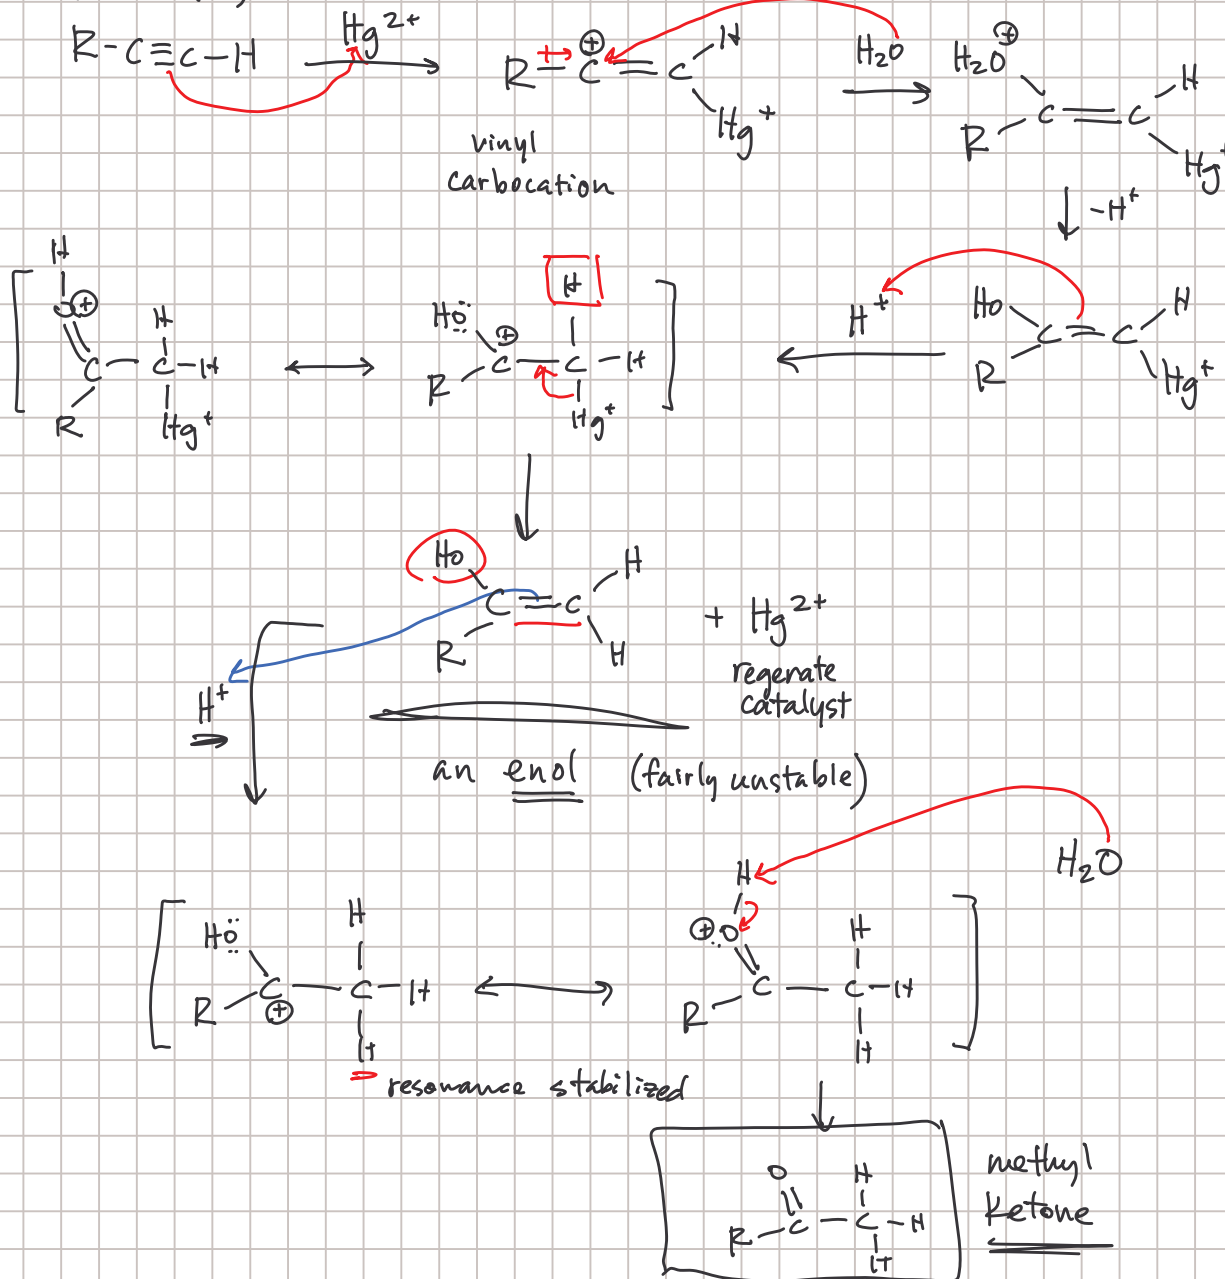 R-C≡C-H
Hg²⁺
R-C=C
⊕
H
Hg⁺
vinyl
carbocation
H₂O
H₂O⊕
R C=C H
Hg⁺
-H⁺
H
O⊕
H
C-C-H
R
Hg⁺
HÖ
⊕
H
C-C-H
R
Hg⁺
H⁺
Ho
H
C=C
R
Hg⁺
Ho
H
C=C
R
H
+ Hg²⁺
regenate
catalyst
H⁺
an enol (fairly unstable)
H₂O
HÖ
H
R C-C-H
⊕
H
H
⊕O
H
R C-C-H
H
resonance stabilized
O
H
R-C-C-H
H
methyl
Ketone